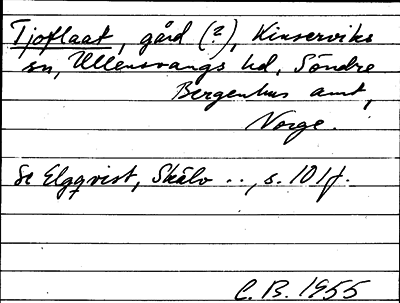 Tjoflaat, gård (?), Kinserviks
sn, Ullensvangs hd, Söndre
Bergenhus amt,
Norge.
Se Elgqvist, Skälv .., s. 101f.
C. B. 1955